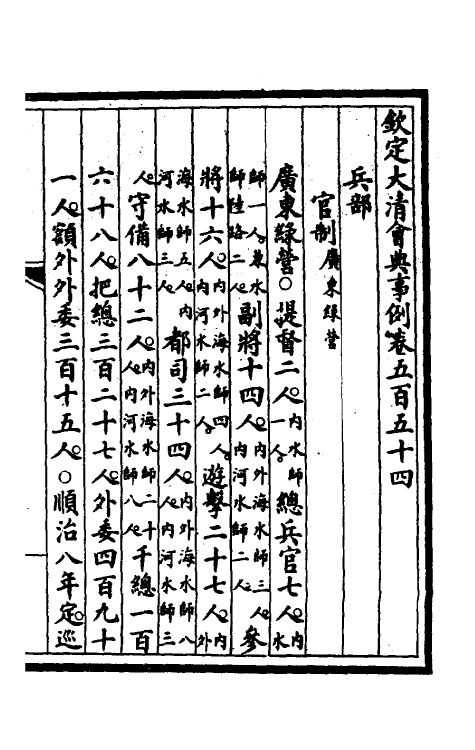 欽定大清會典事例卷五百五十四
兵部
官制廣東綠營
廣東綠營○提督二人。內水師一人。總兵官七人。內水
師一人。兼水師陸路二人。副將十四人。內外海水師三人。內河水師二人。參
將十六人。內外海水師四人。內河水師二人。遊擊二十七人。內外
海水師五人。內河水師三人。都司三十四人。內外海水師八人。內河水師三
人。守備八十二人。內外海水師二十人。內河水師八人。千總一百
六十八人。把總三百二十七人。外委四百九十
一人。額外外委三百十五人。○順治八年定。巡